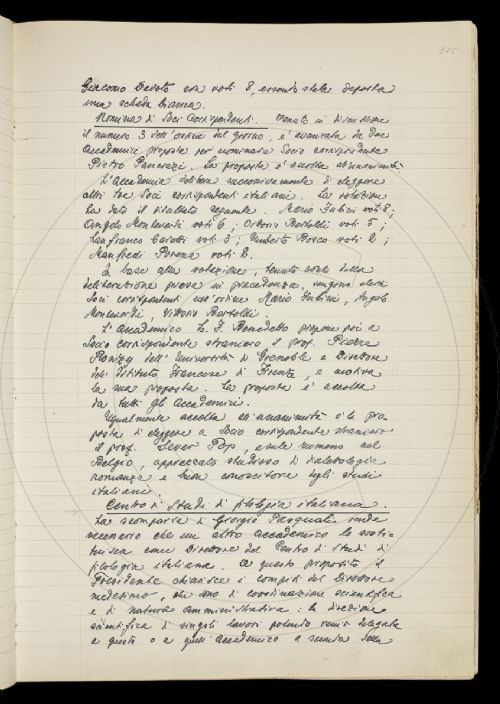 235
Giacomo Devoto con voti 8, essendo stata deposta
una scheda bianca.
Nomina di Soci Corrispondenti. Venuto in discussione
il numero 3 dell'ordine del giorno, è avanzata da due
Accademici proposta per nominare Socio corrispondente
Pietro Pancrazi. La proposta è accolta all'unanimità.
L'Accademia delibera successivamente di eleggere
altri tre Soci corrispondenti italiani. La votazione
ha dato il risultato seguente. Mario Fubini voti 8;
Angelo Monteverdi voti 6; Vittorio Bertoldi voti 5;
Lanfranco Caretti voti 3; Umberto Bosco voti 2;
Manfredi Porena voti 2.
In base alla votazione, tenuto conto della
deliberazione presa in precedenza, vengono eletti
Soci corrispondenti nell'ordine Mario Fubini, Angelo
Monteverdi, Vittorio Bertoldi.
L'Accademico L. F. Benedetto propone poi a
Socio corrispondente straniero il prof. Pierre
Ronzy dell'Università di Grenoble e Direttore
dell'Istituto Francese di Firenze, e motiva
la sua proposta. La proposta è accolta
da tutti gli Accademici.
Ugualmente accolta all'unanimità è la pro-
posta di eleggere a Socio corrispondente straniero
il prof. Sever Pop, esule rumeno nel
Belgio, apprezzato studioso di dialettologia
romanza e buon conoscitore degli studi
italiani.
Centro di Studi di filologia italiana.
La scomparsa di Giorgio Pasquali rende
necessario che un altro accademico lo sosti-
tuisca come Direttore del Centro di Studi di
filologia italiana. A questo proposito il
Presidente chiarisce i compiti del Direttore
medesimo, che sono di coordinazione scientifica
e di natura amministrativa: la direzione
scientifica di singoli lavori potendo venir delegata
a questo o a quell'Accademico a seconda della